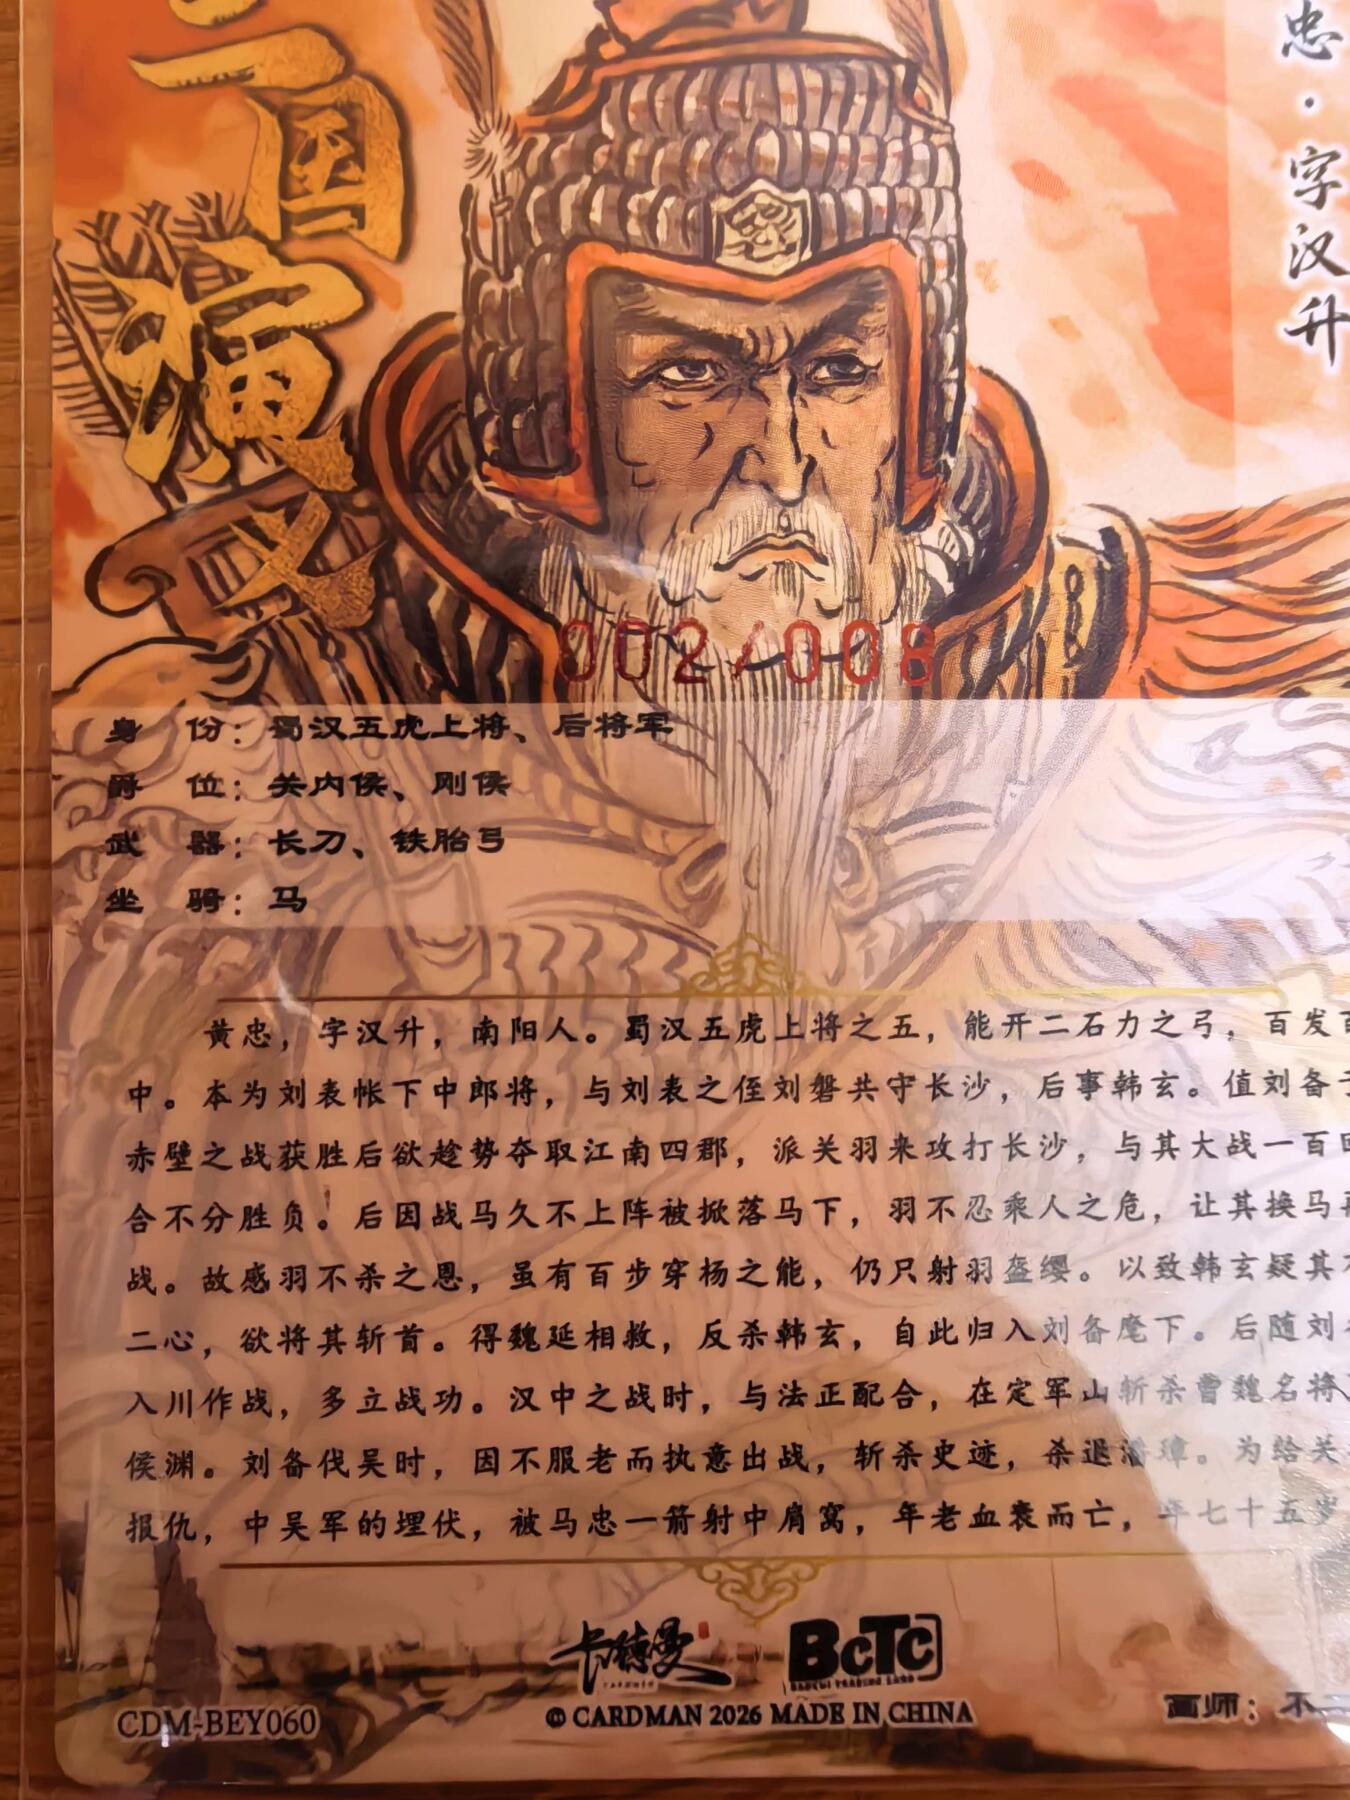 三国演义
忠·字汉升
002/008
身份：蜀汉五虎上将、后将军
爵位：关内侯、刚侯
武器：长刀、铁胎弓
坐骑：马
黄忠，字汉升，南阳人。蜀汉五虎上将之五，能开二石力之弓，百发
中。本为刘表帐下中郎将，与刘表之侄刘磐共守长沙，后事韩玄。值刘备
赤壁之战获胜后欲趁势夺取江南四郡，派关羽来攻打长沙，与其大战一百
合不分胜负。后因战马久不上阵被掀落马下，羽不忍乘人之危，让其换马
战。故感羽不杀之恩，虽有百步穿杨之能，仍只射羽盔缨。以致韩玄疑其
二心，欲将其斩首。得魏延相救，反杀韩玄，自此归入刘备麾下。后随刘
入川作战，多立战功。汉中之战时，与法正配合，在定军山斩杀曹魏名将
侯渊。刘备伐吴时，因不服老而执意出战，斩杀史迹，杀退潘璋。为给关
报仇，中吴军的埋伏，被马忠一箭射中肩窝，年老血衰而亡，年七十五岁
卡德曼
CARDMAN
BCTC
CDM-BEY060
© CARDMAN 2026 MADE IN CHINA
画师：不二